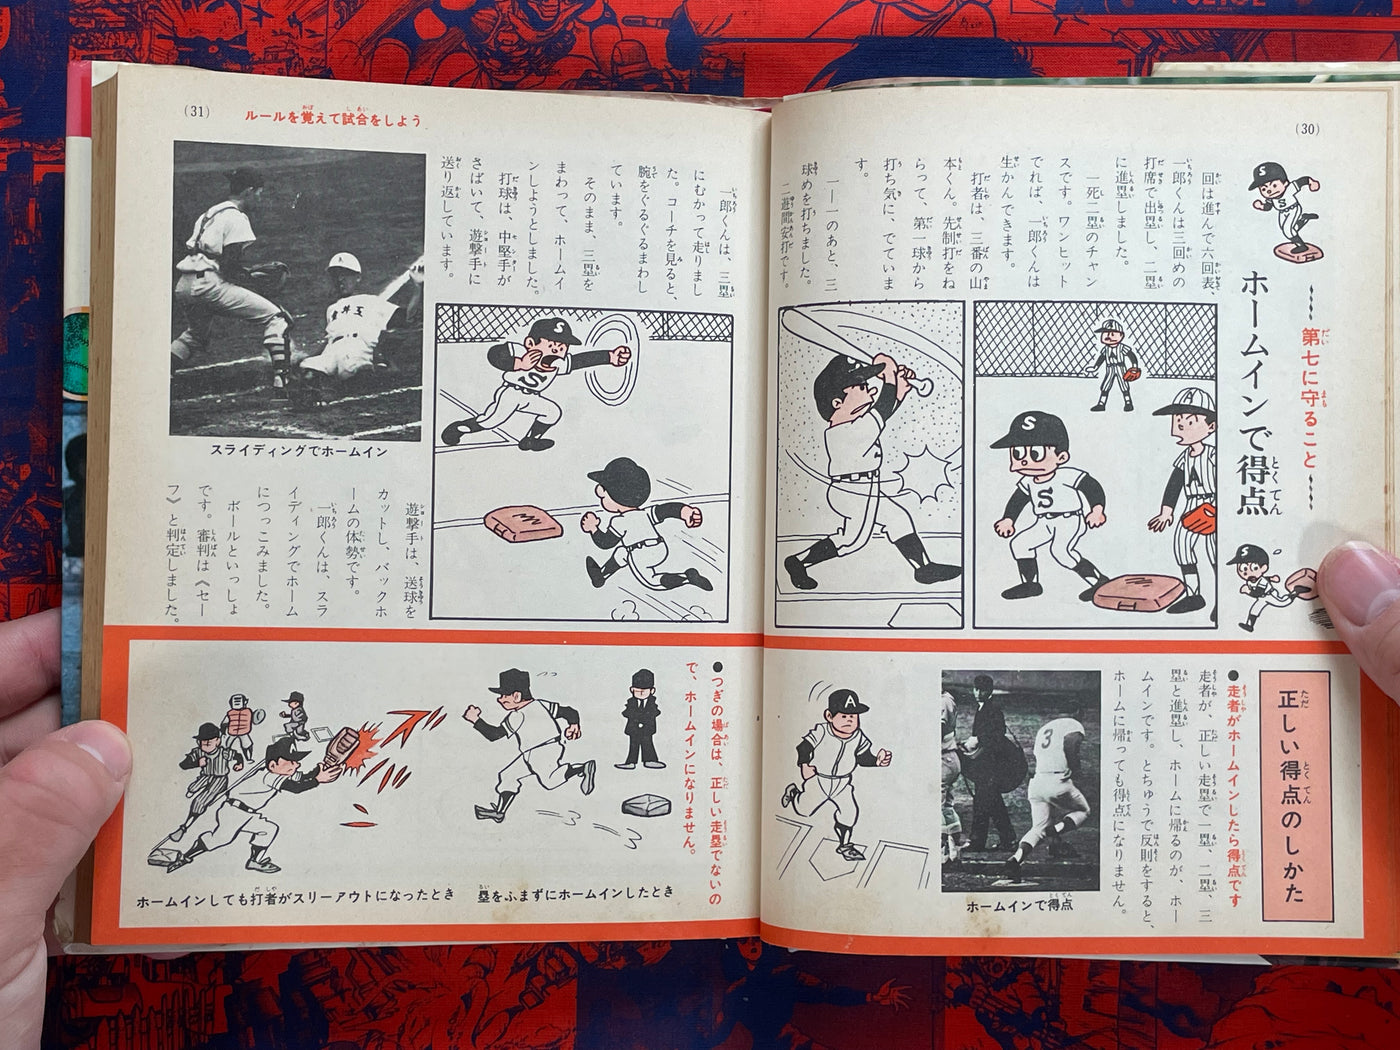 (30)
第七に守ること
ホームインで得点
回は進んで六回表、
一郎くんは三回めの
打席で出塁し、二塁
に進塁しました。
一死二塁のチャン
スです。ワンヒット
でれば、一郎くんは
生かんできます。
打者は、三番の山
本くん。先制打をね
らって、第一球から
打ち気に、でていま
す。
一―一のあと、三
球めを打ちました。
二遊間安打です。
S
S
S
A
S
S
正しい得点のしかた
●走者がホームインしたら得点です
走者が、正しい走塁で一塁、二塁、三
塁と進塁し、ホームに帰るのが、ホー
ムインです。とちゅうで反則をすると、
ホームに帰っても得点になりません。
3
ホームインで得点
A
(31)
ルールを覚えて試合をしよう
一郎くんは、三塁
にむかって走りまし
た。コーチを見ると、
腕をぐるぐるまわし
ています。
そのまま、三塁を
まわって、ホームイ
ンしようとしました。
打球は、中堅手が
さばいて、遊撃手に
送り返しています。
S
S
スライディングでホームイン
遊撃手は、送球を
カットし、バックホ
ームの体勢です。
一郎くんは、スラ
イディングでホーム
につっこみました。
ボールといっしょ
です。審判は《セー
フ》と判定しました。
●つぎの場合は、正しい走塁でないの
で、ホームインになりません。
塁をふまずにホームインしたとき
ホームインしても打者がスリーアウトになったとき